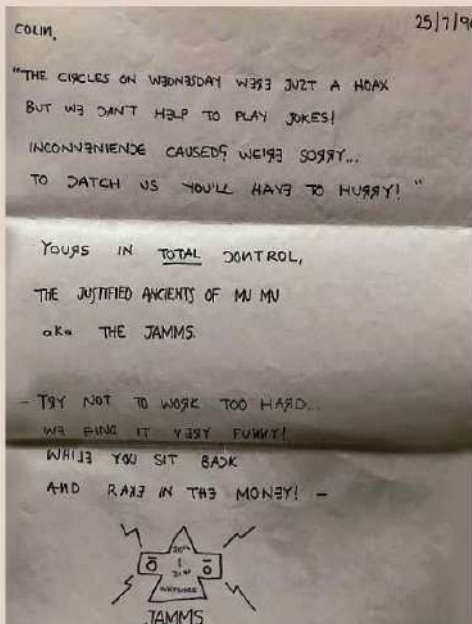 25/7/90
COLIN,
"THE CIRCLES ON WEDNESDAY WERE JUZT A HOAX
BUT WE CAN'T HELP TO PLAY JOKES!
INCONVENIENCE CAUSED? WE'RE SORRY...
TO CATCH US YOU'LL HAVE TO HURRY!"
YOURS IN TOTAL CONTROL,
THE JUSTIFIED ANCIENTS OF MU MU
aka THE JAMMS.
- TRY NOT TO WORK TOO HARD...
WE FIND IT VERY FUNNY!
WHILE YOU SIT BACK
AND RAKE IN THE MONEY! -
JAMMS